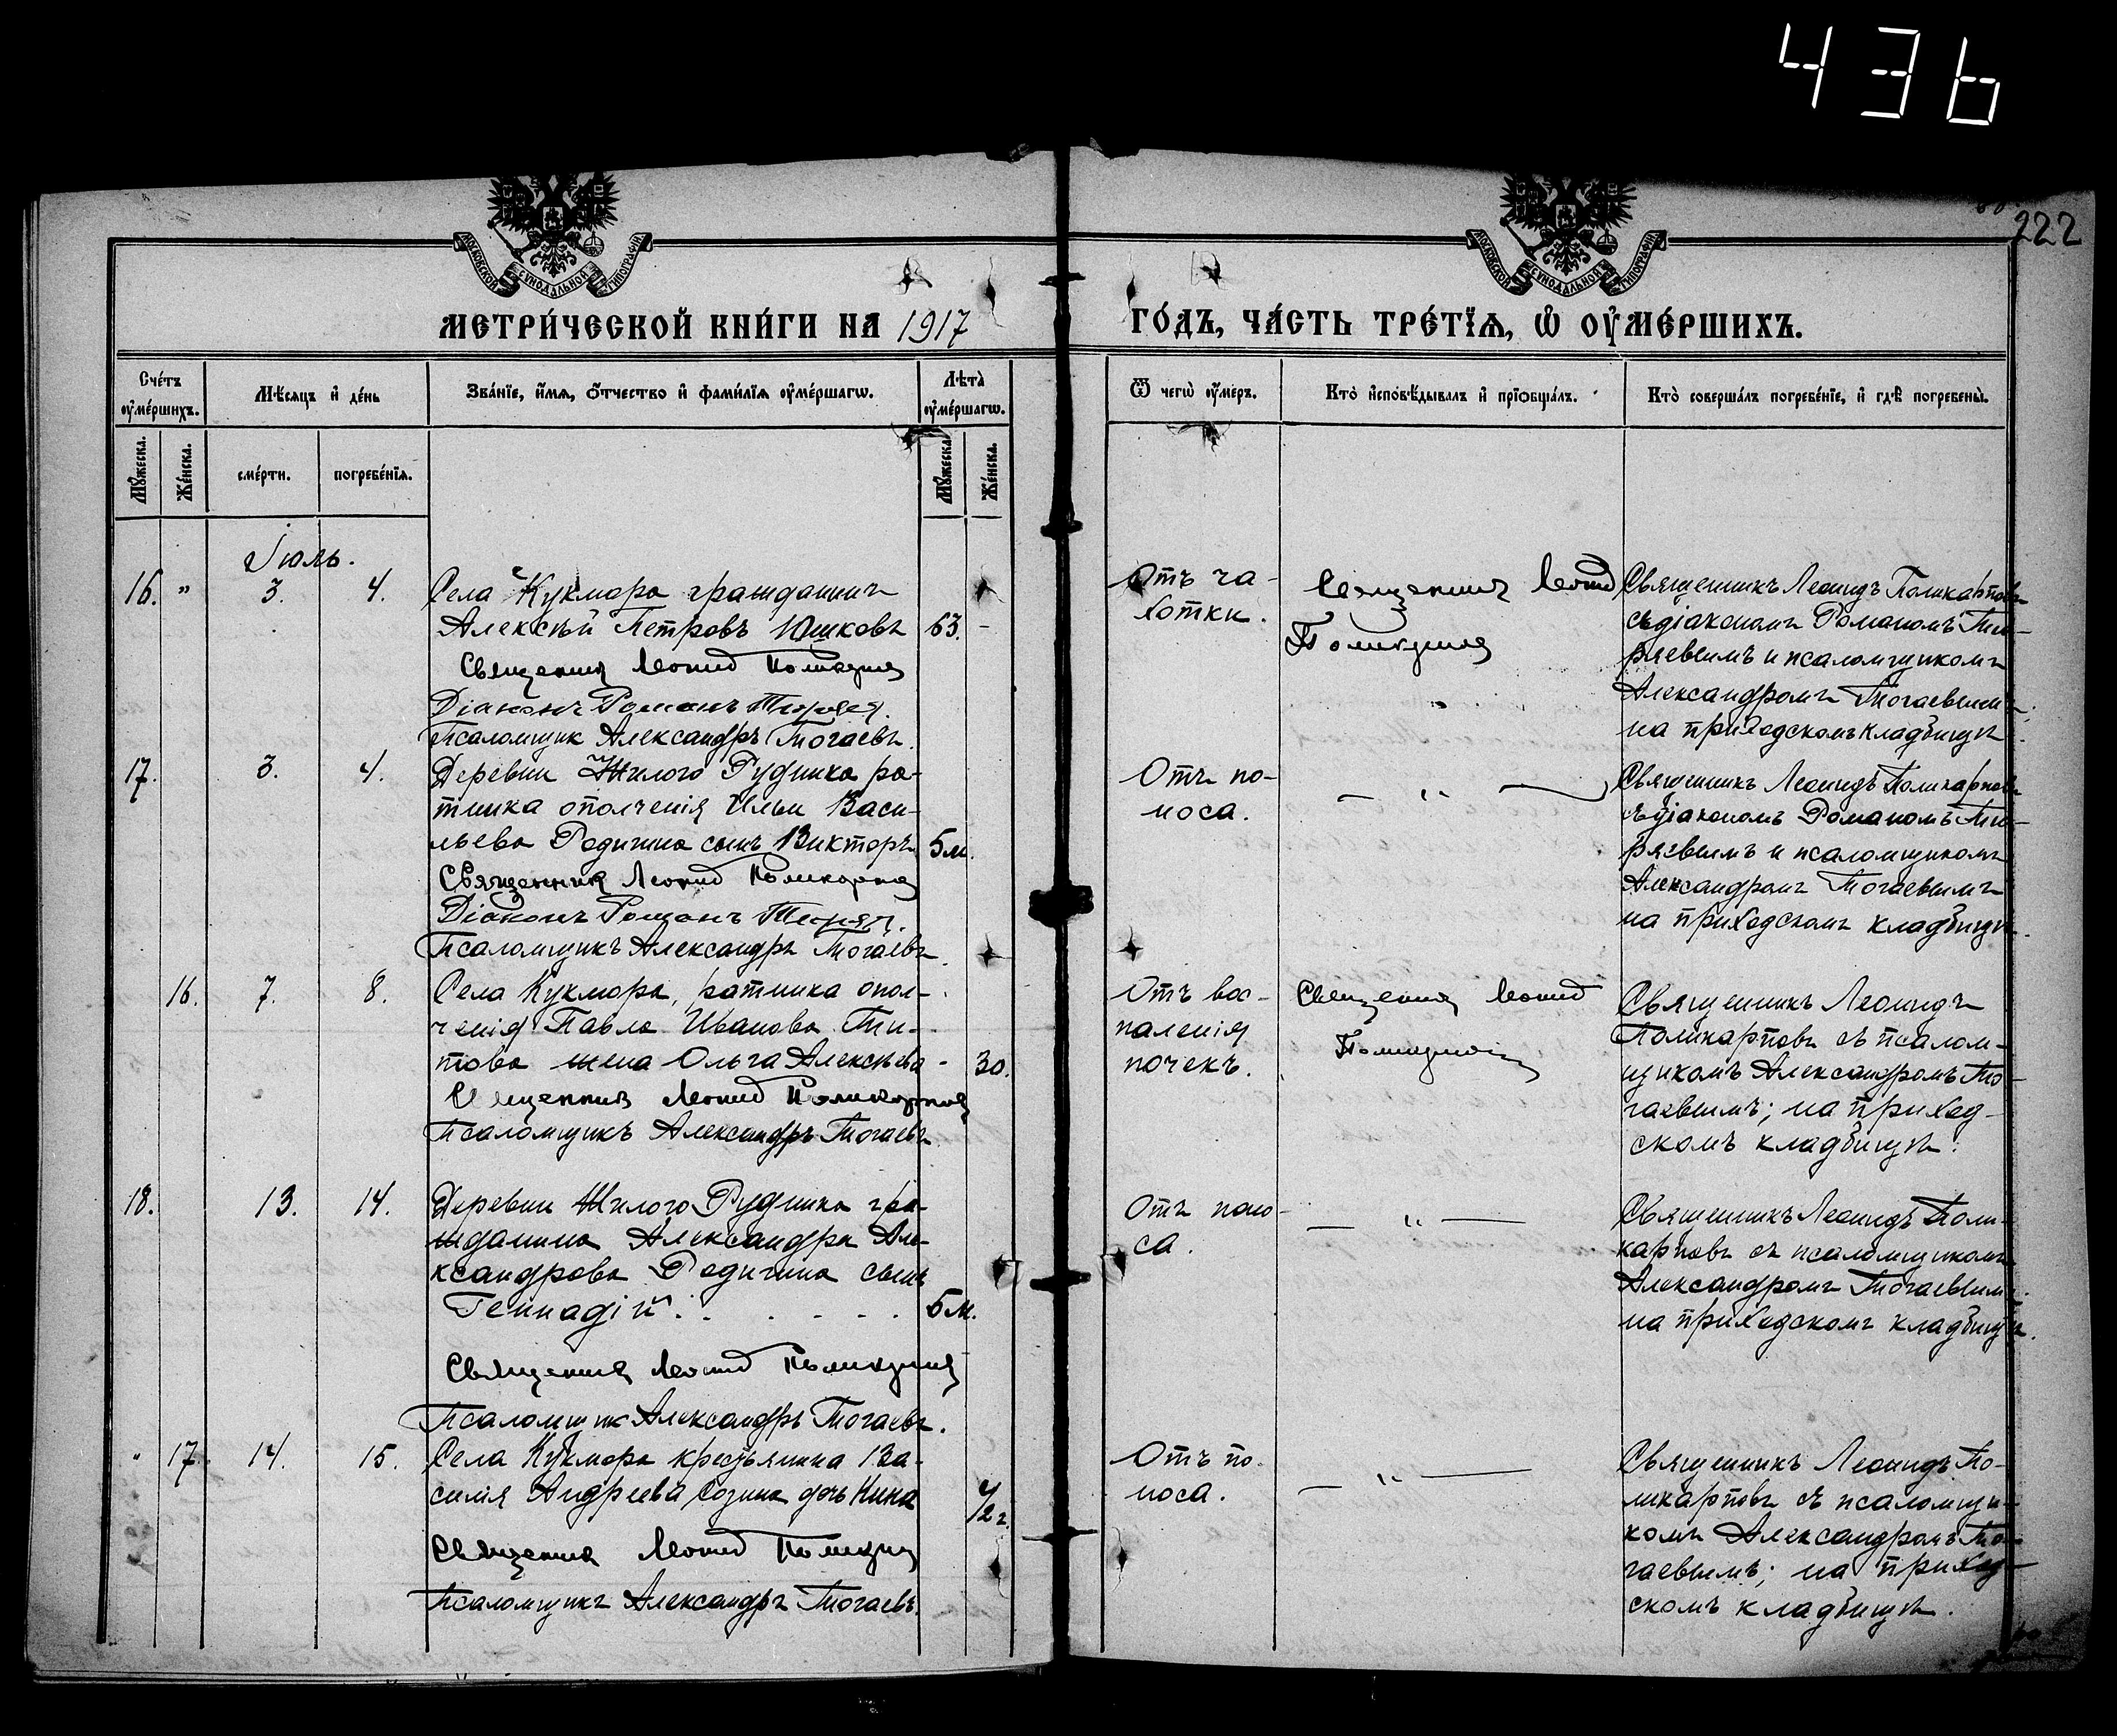 436
222
МОСКОВСКОЙ СѴНОДАЛЬНОЙ ТИПОГРАФІИ
МОСКОВСКОЙ СѴНОДАЛЬНОЙ ТИПОГРАФІИ
МЕТРИ́ЧЕСКОЙ КНИ́ГИ НА 1917
ГО́ДЪ, ЧА́СТЬ ТРЕ́ТЇѦ, Ѡ҆ ОУ҆МЕ́РШИХЪ.
Сче́тъ оу҆ме́ршихъ.
Мѣ́сѧцъ и҆ де́нь
Зва́нїе, и҆́мѧ, ѻ҆́тчество и҆ фами́лїѧ оу҆ме́ршагѡ.
Лѣта̀ оу҆ме́ршагѡ.
Ѿ чегѡ̀ оу҆́меръ.
Кто̀ и҆сповѣ́дывалъ и҆ прїѡбща́лъ.
Кто̀ соверша́лъ погребе́нїе, и҆ гдѣ̀ погребены̀.
Мꙋ́жеска.
Же́нска.
сме́рти.
погребе́нїѧ.
Мꙋ́жеска.
Же́нска.
Іюль.
16. " 3. 4.
Села Кукмора гражданинъ
Алексѣй Петровъ Юшковъ 63. -
Священникъ Леонид Поликарпов
Діаконъ Романъ
Псаломщик Александръ Тогаевъ.
Отъ ча-
хотки.
Священникъ Леонид
Поликарпов
Священникъ Леонидъ Поликарповъ
съ діакономъ Романомъ Ти-
ряевымъ и псаломщикомъ
Александромъ Тогаевымъ
на приходскомъ кладбищѣ
17. 3. 4.
Деревни Жилого Рудника ра-
тника ополченія Ильи Васи-
льева Родигина сынъ Викторъ 5 м.
Священник Леонид Поликарпов
Діаконъ Романъ
Псаломщикъ Александръ Тогаевъ.
Отъ по-
носа.
— " —
Священникъ Леонидъ Поликарповъ
съ діакономъ Романомъ Ти-
ряевымъ и псаломщикомъ
Александромъ Тогаевымъ
на приходскомъ кладбищѣ.
16. 7. 8.
Села Кукмора, ратника опол-
ченія Павла Иванова Ти-
това жена Ольга Алексѣева - 30.
Священник Леонид Поликарпов
Псаломщикъ Александръ Тогаевъ.
Отъ вос-
паленія
почекъ.
Священник Леонид
Поликарпов
Священникъ Леонидъ
Поликарповъ съ псалом-
щикомъ Александромъ То-
гаевымъ; на приход-
скомъ кладбищѣ.
18. 13. 14.
Деревни Жилого Рудника гра-
жданина Александра Але-
ксандрова Родигина сынъ
Геннадій. 5 м.
Священник Леонид Поликарпов
Псаломщик Александръ Тогаевъ.
Отъ поно-
са.
— " —
Священникъ Леонидъ Поли-
карповъ съ псаломщикомъ
Александромъ Тогаевымъ
на приходскомъ кладбищѣ.
" 17. 14. 15.
Села Кукмора крестьянина Ва-
силія Андреева Созина дочь Нина 1/2 г.
Священник Леонид Поликарпов
Псаломщикъ Александръ Тогаевъ.
Отъ по-
носа.
— " —
Священникъ Леонидъ По-
ликарповъ съ псаломщи-
комъ Александромъ То-
гаевымъ; на приход-
скомъ кладбищѣ.